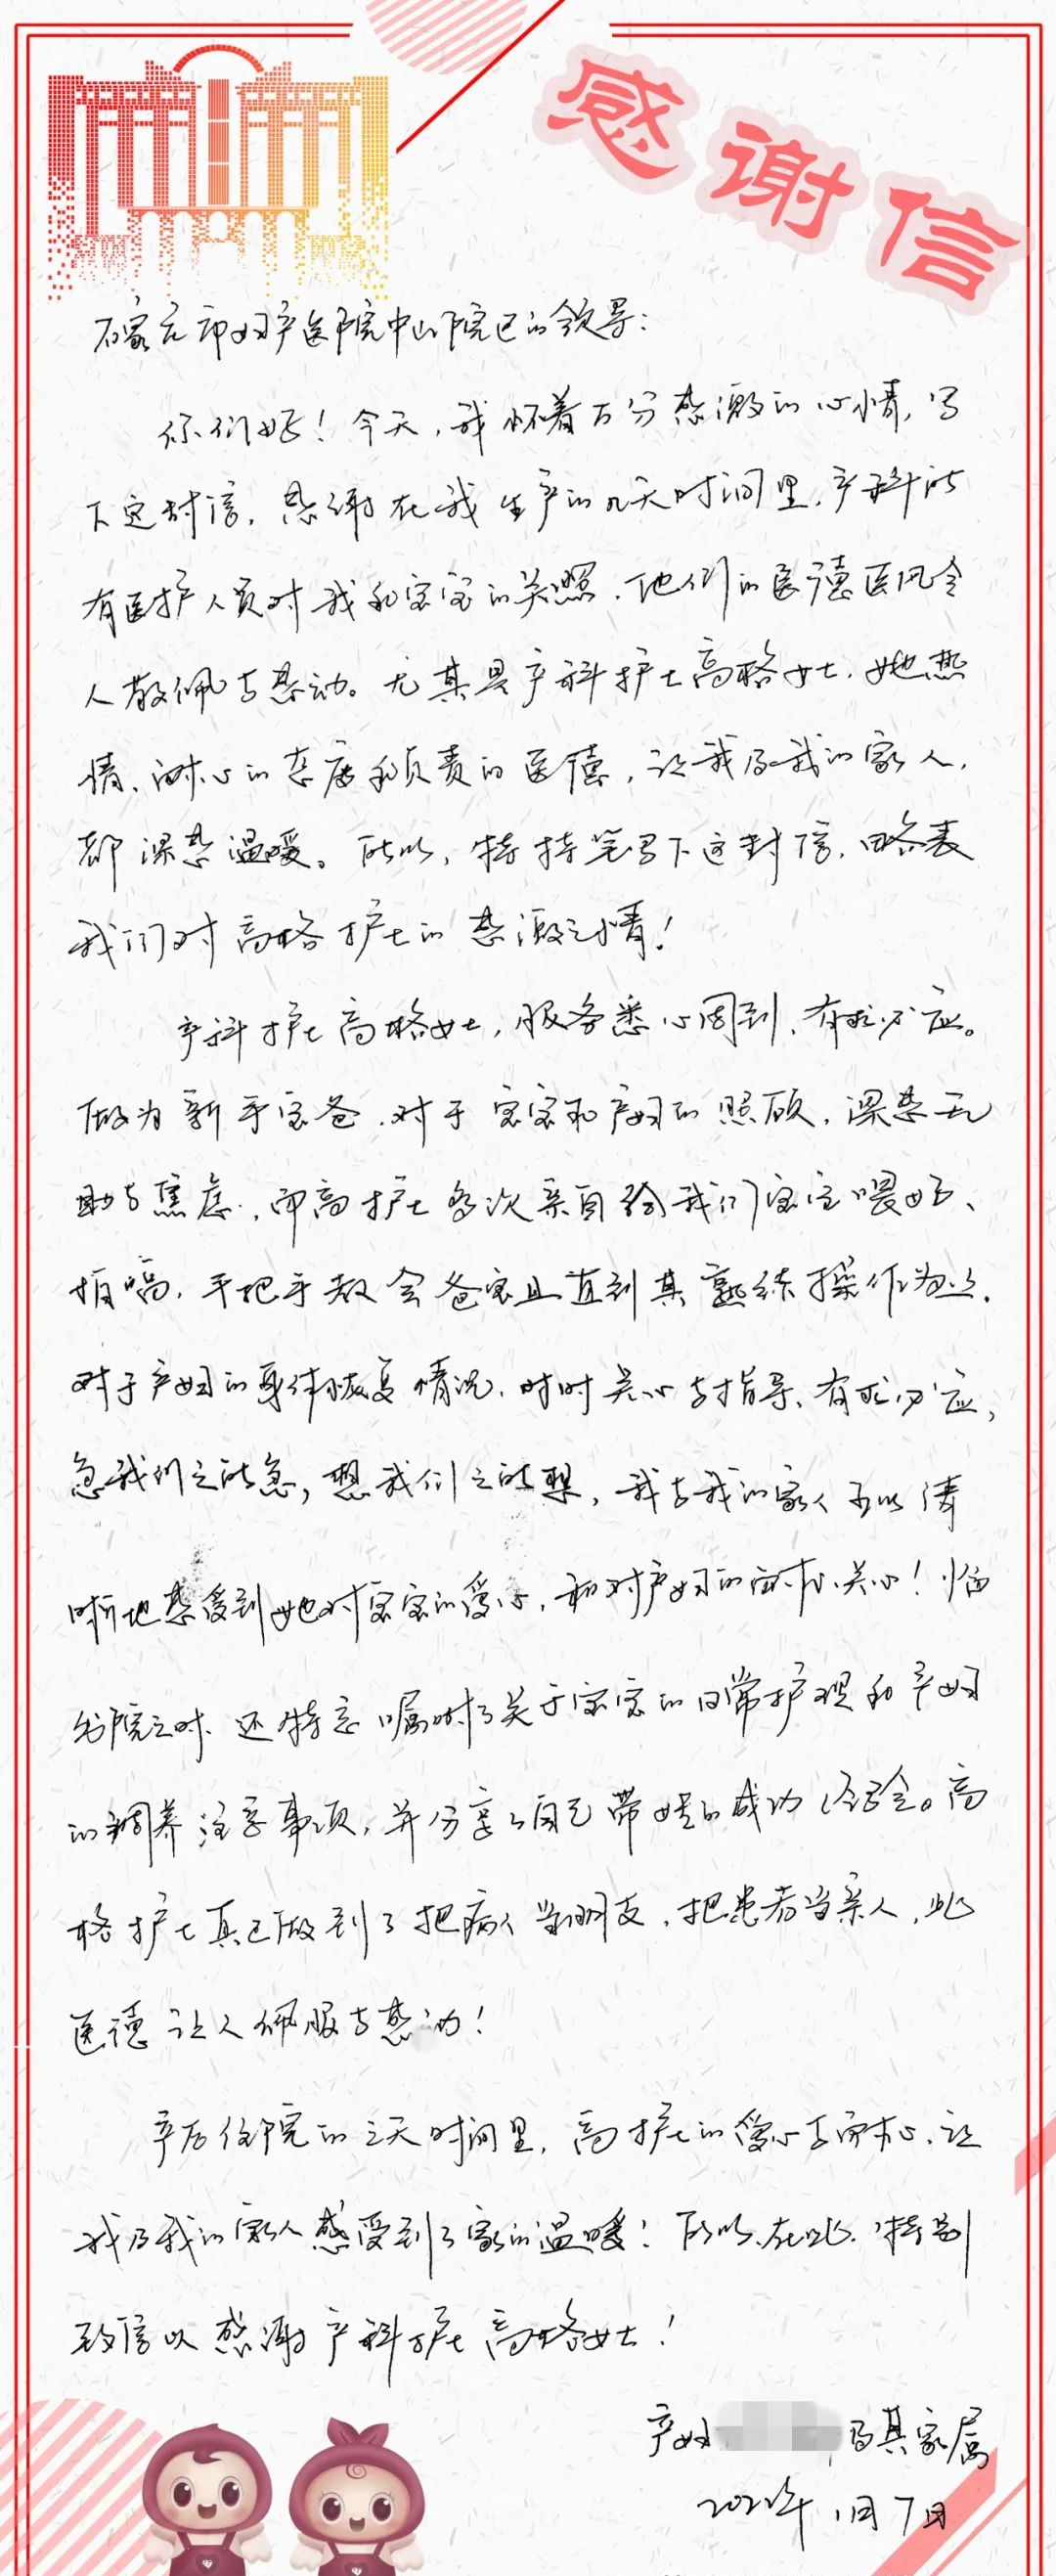 感谢信
石家庄市妇产医院中山院区的领导：
你们好！今天，我怀着万分感激的心情，写
下这封信，感谢在我生产的几天时间里，产科所
有医护人员对我和宝宝的关照，他们的医德医风令
人敬佩与感动。尤其是产科护士高格女士，她热
情、耐心的态度和负责的医德，让我及我的家人，
都深感温暖。所以，特持笔写下这封信，略表
我们对高格护士的感激之情！
产科护士高格女士，服务悉心周到、有求必应。
做为新手宝爸，对于宝宝和产妇的照顾，深感无
助与焦虑，而高护士多次亲自给我们宝宝喂奶、
拍嗝，手把手教会爸宝且直到其熟练操作为止．
对于产妇的身体恢复情况，时时关心与指导、有求必应，
急我们之所急，想我们之所想，我与我的家人可以清
晰地感受到她对宝宝的爱心，和对产妇的耐心、关心！临
出院之时，还特意嘱咐了关于宝宝的日常护理和产妇
的调养注意事项，并分享了自己带娃的成功经验。高
格护士真正做到了把病人当朋友，把患者当亲人，此
医德让人佩服与感动！
产后住院的三天时间里，高护士的爱心与耐心，让
我及我的家人感受到了家的温暖！所以，在此，特别
致信以感谢产科护士高格女士！
产妇 及其家属
2022年1月7日